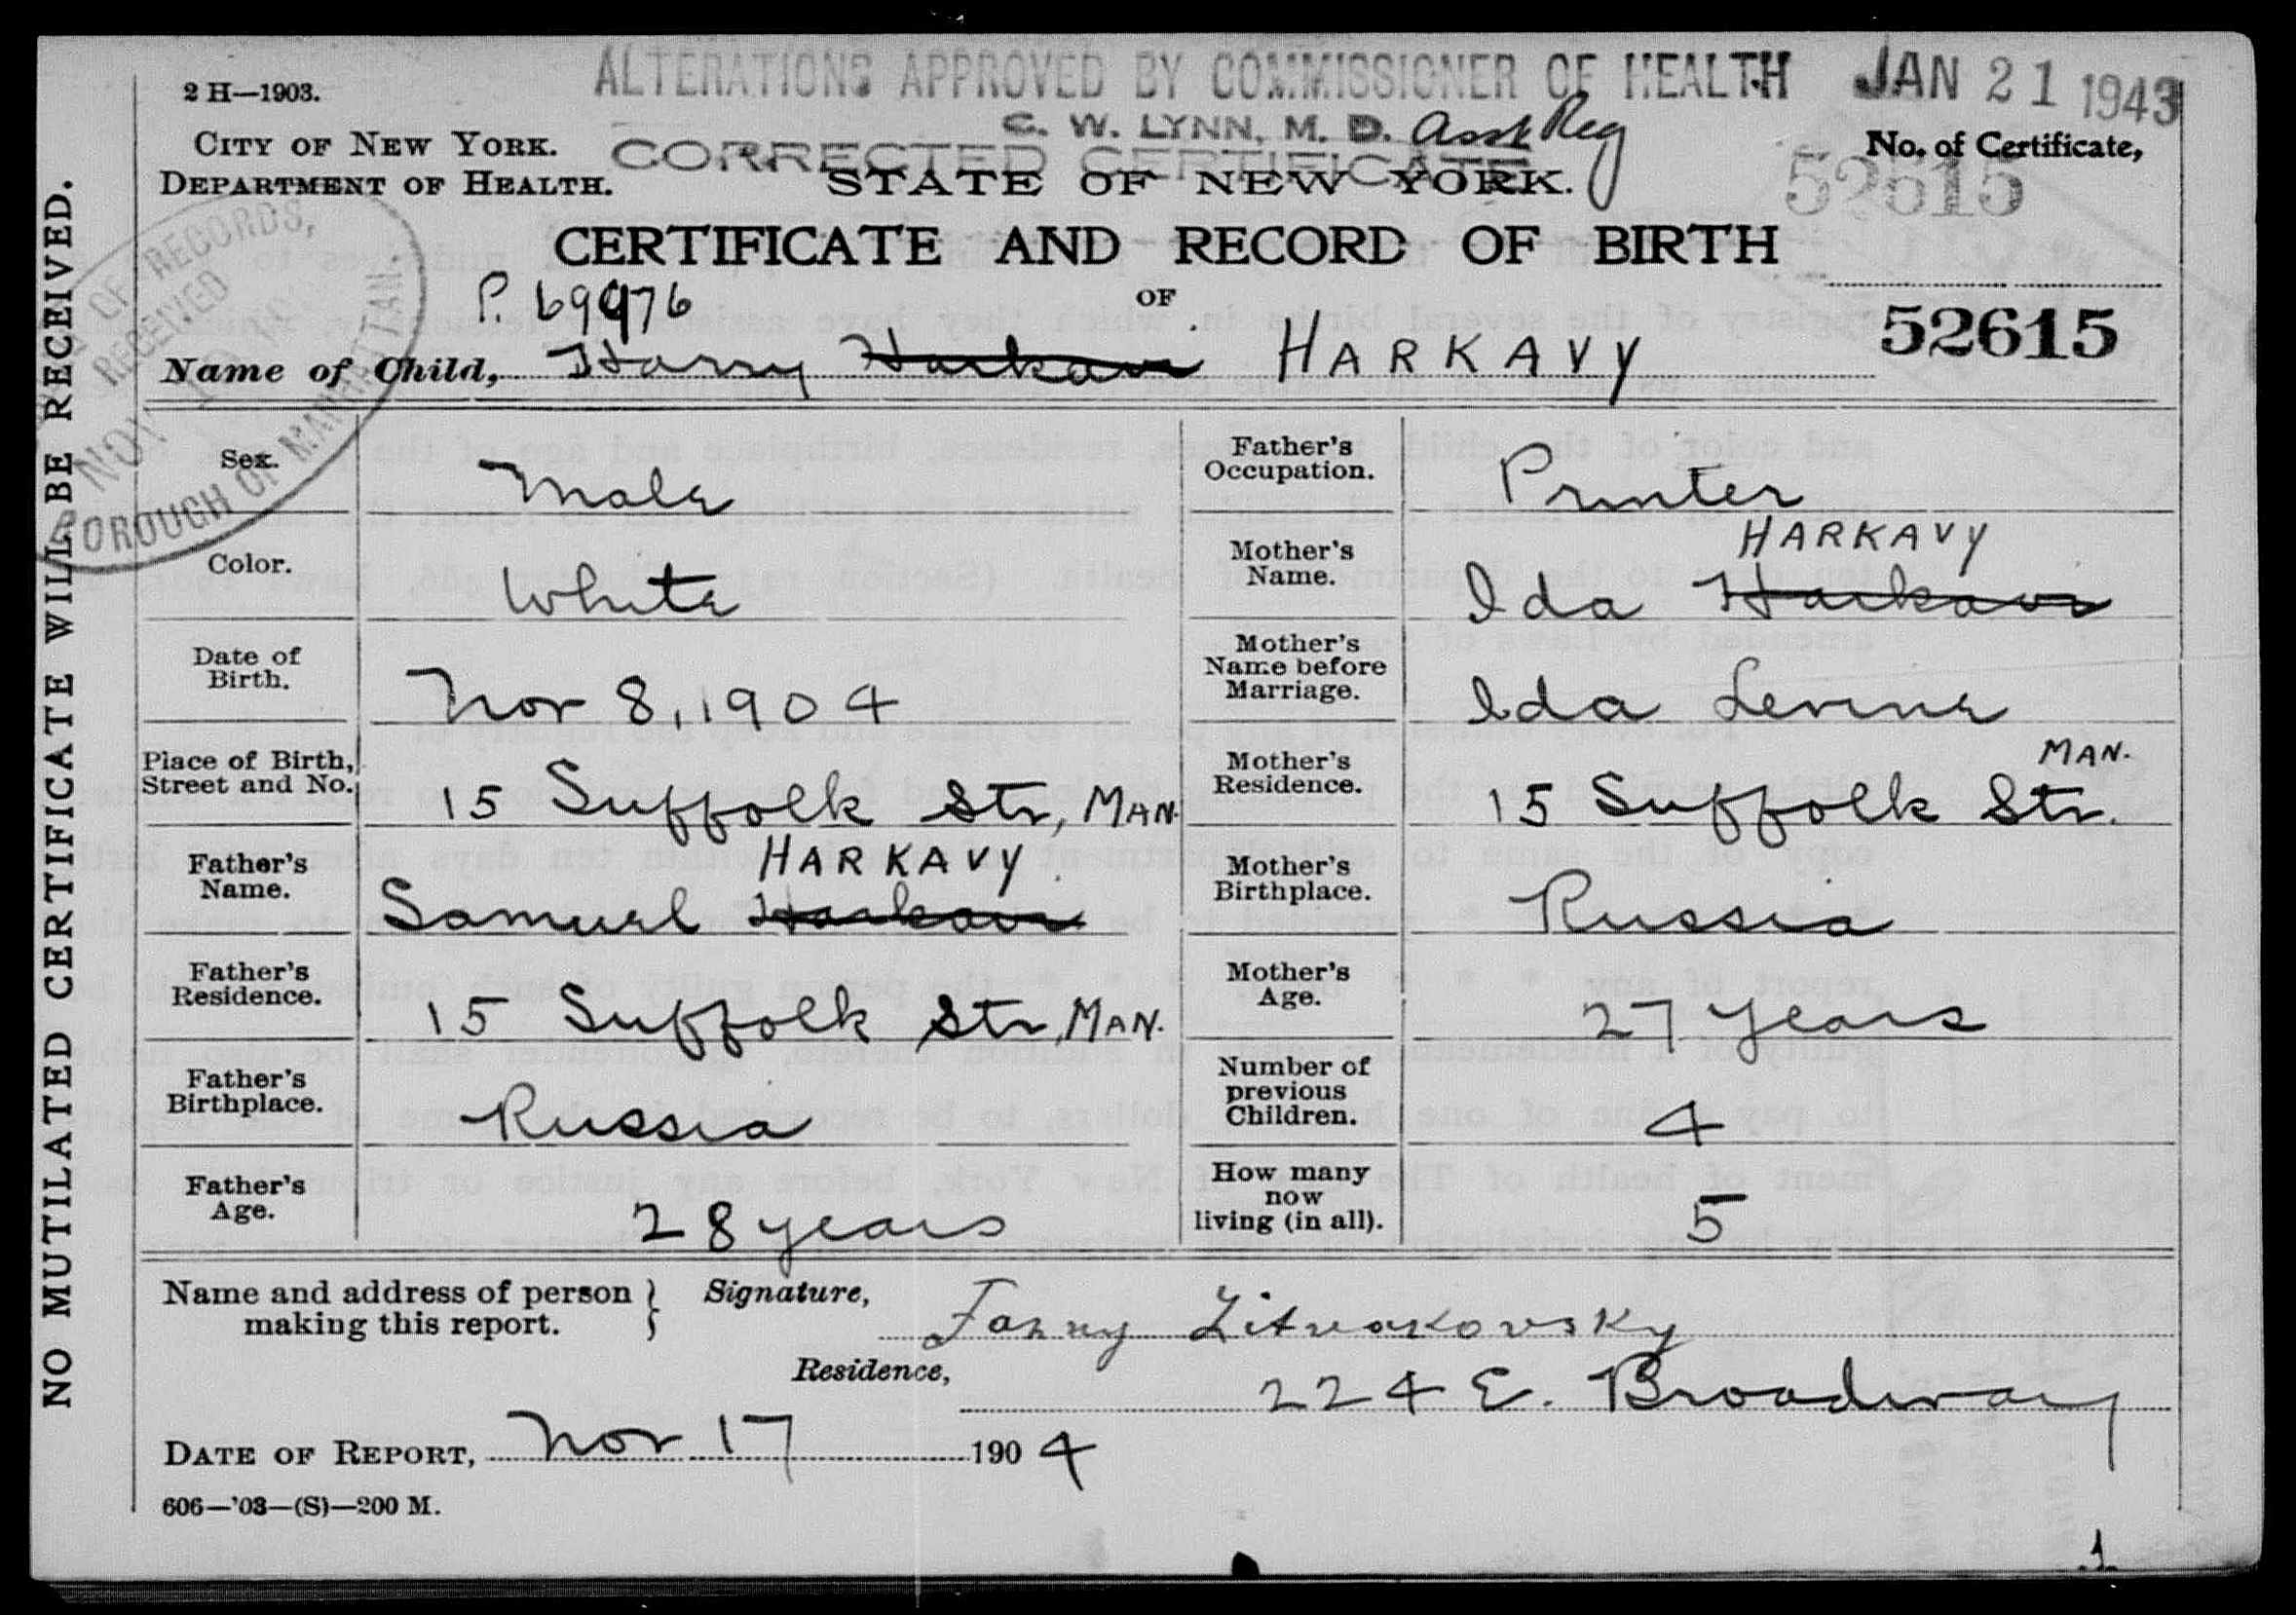 ALTERATIONS APPROVED BY COMMISSIONER OF HEALTH JAN 21 1943
2 H—1903.
C. W. LYNN, M. D. Asst Reg
CITY OF NEW YORK.
DEPARTMENT OF HEALTH.
CORRECTED CERTIFICATE
STATE OF NEW YORK.
No. of Certificate,
52615
CERTIFICATE AND RECORD OF BIRTH
OF
P. 69976
52615
Name of Child, Harry Harkavi HARKAVY
NO MUTILATED CERTIFICATE WILL BE RECEIVED.
OF RECORDS,
RECEIVED
NOV
BOROUGH OF MANHATTAN.
Sex. Male
Color. White
Date of Birth. Nov 8, 1904
Place of Birth, Street and No. 15 Suffolk Str, MAN.
HARKAVY
Father's Name. Samuel Harkavi
Father's Residence. 15 Suffolk Str, MAN.
Father's Birthplace. Russia
Father's Age. 28 years
Father's Occupation. Printer
HARKAVY
Mother's Name. Ida Harkavi
Mother's Name before Marriage. Ida Levine
MAN.
Mother's Residence. 15 Suffolk Str.
Mother's Birthplace. Russia
Mother's Age. 27 years
Number of previous Children. 4
How many now living (in all). 5
Name and address of person making this report.
Signature, Fanny Litvakovsky
Residence, 224 E. Broadway
DATE OF REPORT, Nov 17 1904
606—'03—(S)—200 M.
1